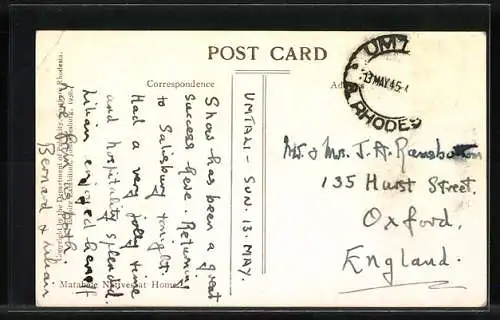 POST CARD
Correspondence
UMTALI - SUN. 13. MAY.
Show has been a great
success here. Returning
to Salisbury tonight.
Had a very jolly time
and hospitality splendid.
Lilian enjoyed herself
Love from us both.
Bernard & Lilian
UMT
13 MAY 45
RHODES
Mr. & Mrs. J. A. Ransbottom
135 Hurst Street.
Oxford.
England.
Matabele Natives at Home